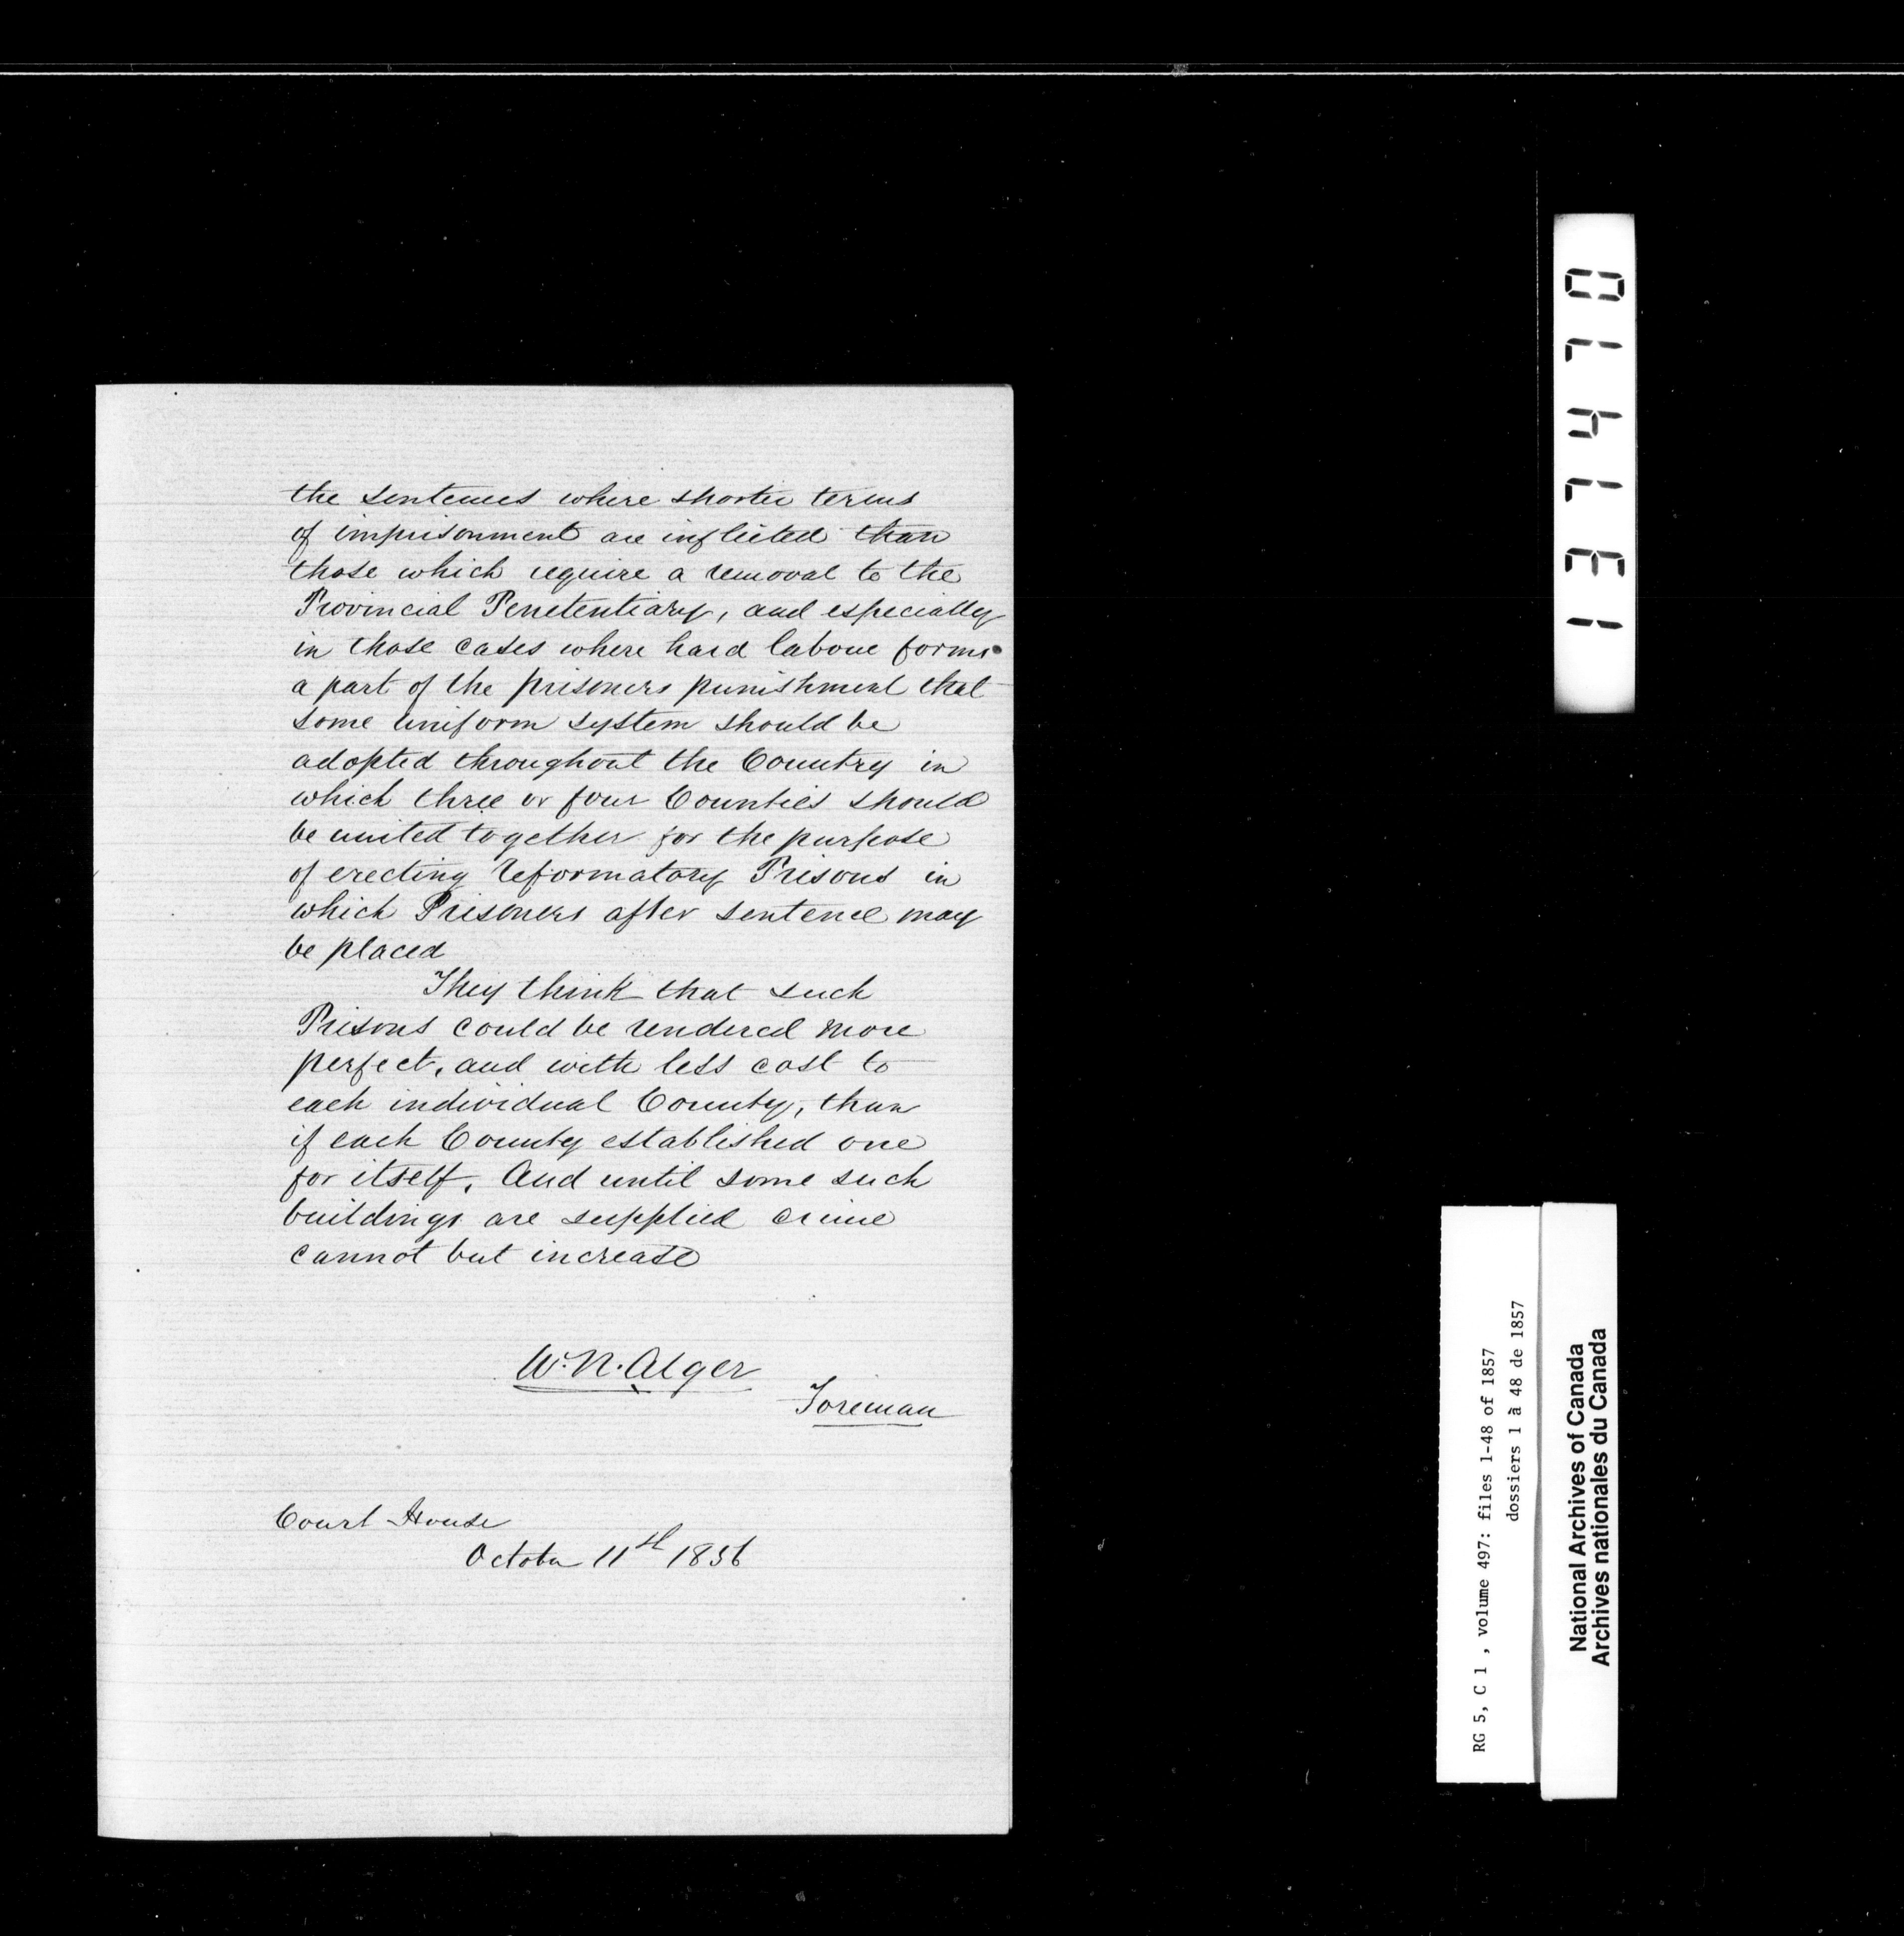 the sentences where shorter terms
of imprisonment are inflicted than
those which require a removal to the
Provincial Penetentiary, and especially
in those cases where hard labour forms
a part of the prisoners punishment that
some uniform system should be
adopted throughout the Country in
which three or four Counties should
be united together for the purpose
of erecting Reformatory Prisons in
which Prisoners after sentence may
be placed
They think that such
Prisons could be rendered more
perfect, and with less cost to
each individual County, than
if each County established one
for itself. And until some such
buildings are supplied crime
cannot but increase
W. N. Alger
Foreman
Court House
October 11th 1856
017431
RG 5, C 1 , volume 497: files 1-48 of 1857
dossiers 1 à 48 de 1857
National Archives of Canada
Archives nationales du Canada